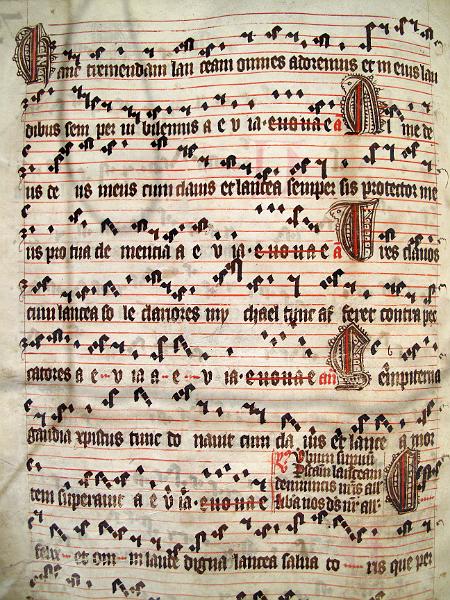 anc tremendam lan ceam omnes adoremus et in eius lau
dibus sem per iu bilemus a e v ia. euouae a me de
us de us meus cum clauis et lancea semper sis protector me
us pro tua de mencia a e v ia. euouae a Tres clauos
cum lancea so le clariores my chael tunc af feret contra pec
catores a e v ia a e v ia. euouae an empiterna
gaudia xpistus tunc do nauit cum cla uis et lance a mor
tem superauit a e v ia. euouae
felix et om ni laude digna lancea salua to ris que per